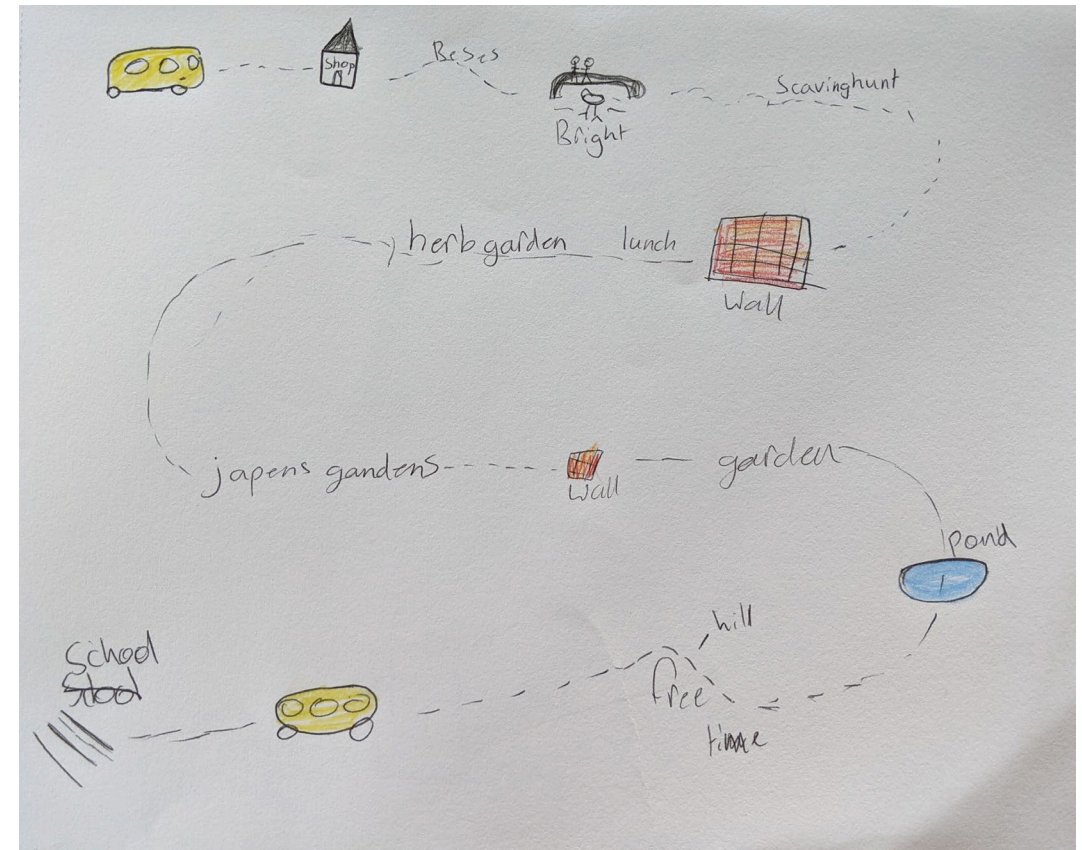 Shop
Beses
Bright
Scavinghunt
herb garden
lunch
Wall
japens gandens
Wall
garden
pond
hill
free
time
School